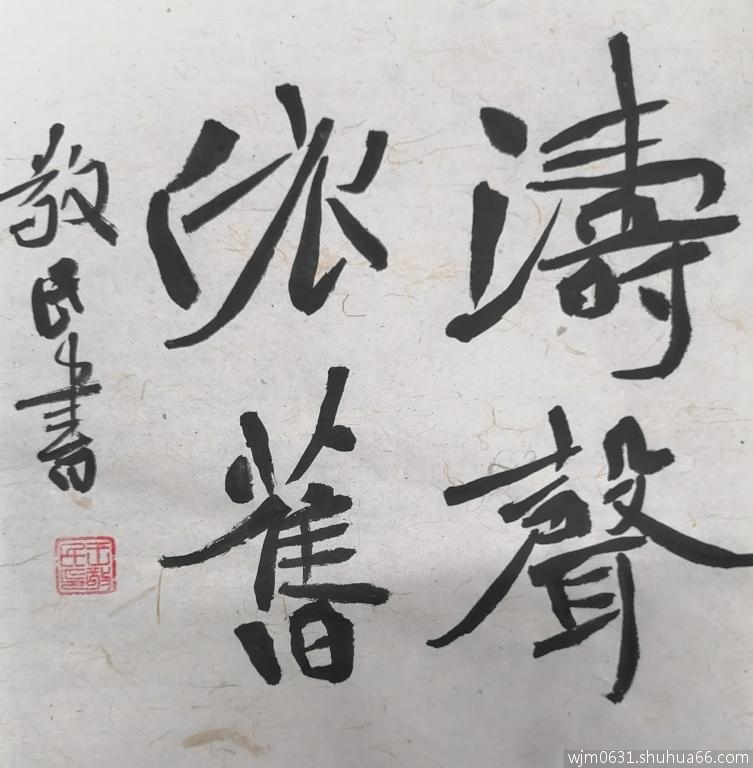 濤聲
依舊
敬民書
王敬民印
wjm0631.shuhua66.com